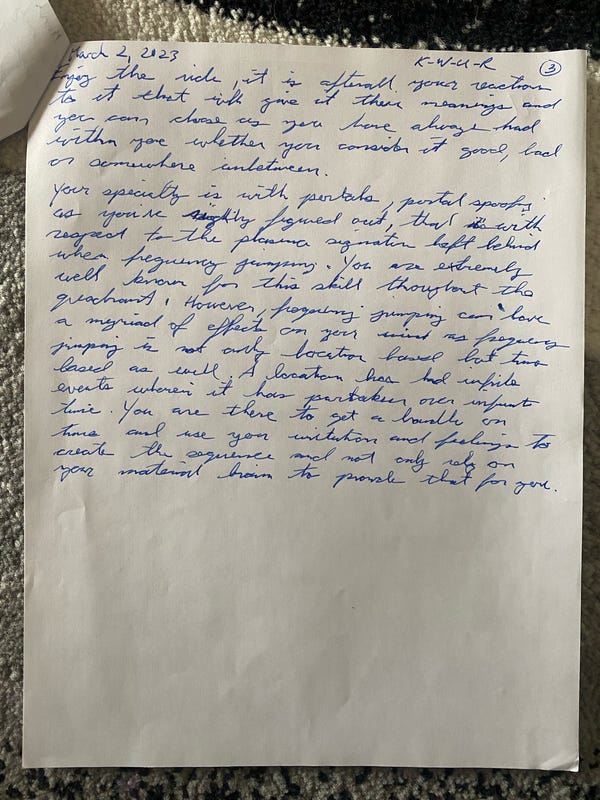 March 2, 2023 K-W-U-R 3
Enjoy the ride, it is afterall your reaction
to it that will give it these meanings and
you can choose as you have always had
within you whether you consider it good, bad
or somewhere inbetween.
Your specialty is with portals, portal spoofing
as you've figured out, that is with
respect to the plasma signature left behind
when frequency jumping. You are extremely
well known for this skill throughout the
quadrant. However, frequency jumping can have
a myriad of effects on your mind as frequency
jumping is not only location based but time
based as well. A location has had infite
events wherein it has partaken over infinite
time. You are there to get a handle on
time and use your intuition and feelings to
create the sequence and not only rely on
your material brain to provide that for you.